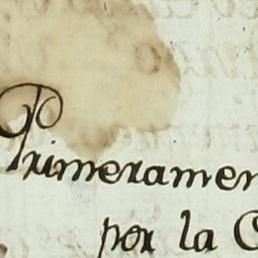 Primeramen
por la C